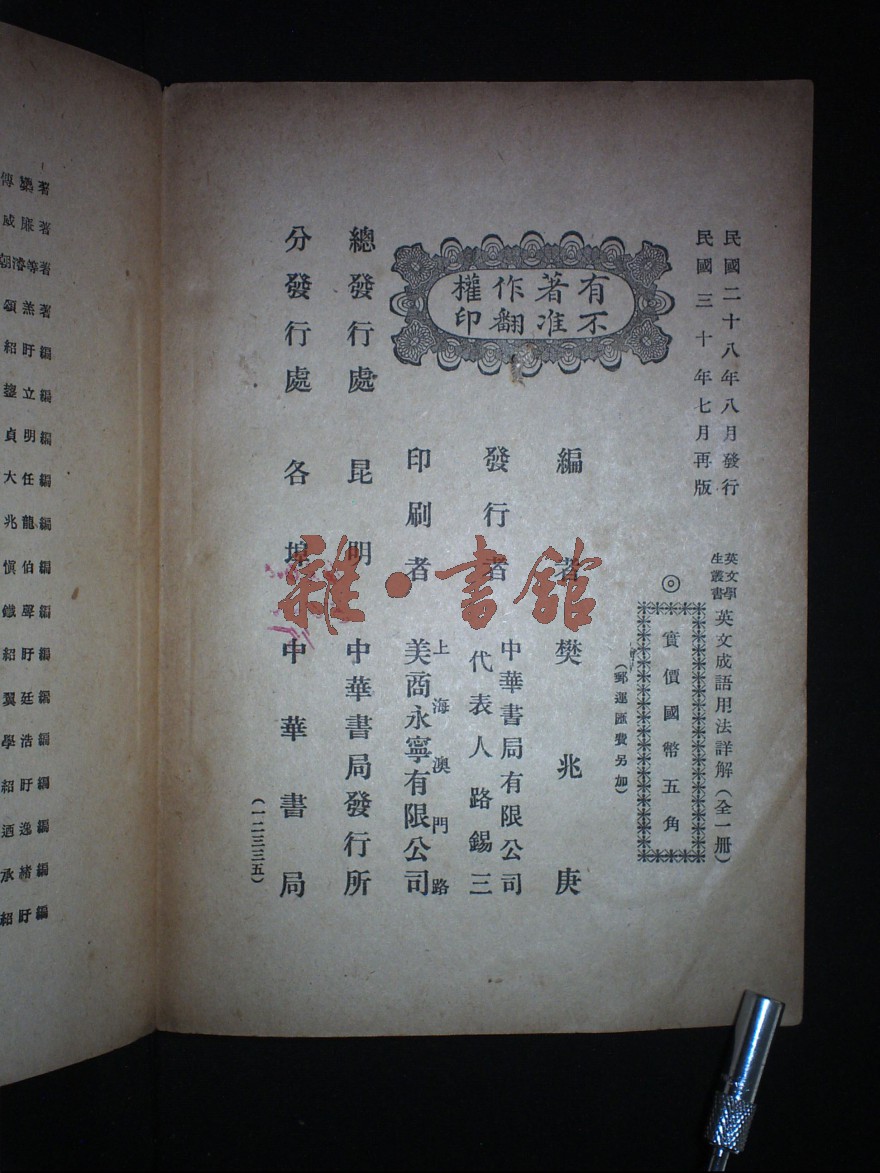 民國二十八年八月發行
民國三十年七月再版
英文學生叢書
英文成語用法詳解（全一冊）
◎
實價國幣五角
（郵運匯費另加）
有著作權
不准翻印
編者 樊兆庚
發行者 中華書局有限公司
代表人路錫三
印刷者 上海澳門路
美商永寧有限公司
總發行處 昆明 中華書局發行所
分發行處 各埠 中華書局
（一二三三五）
雜·書館
著
威廉著
等著
羔著
紹盱編
立編
貞明編
大任編
兆龍編
慎伯編
鐵聲編
紹盱編
翼廷編
學浩編
紹盱編
逸編
承緒編
紹盱編